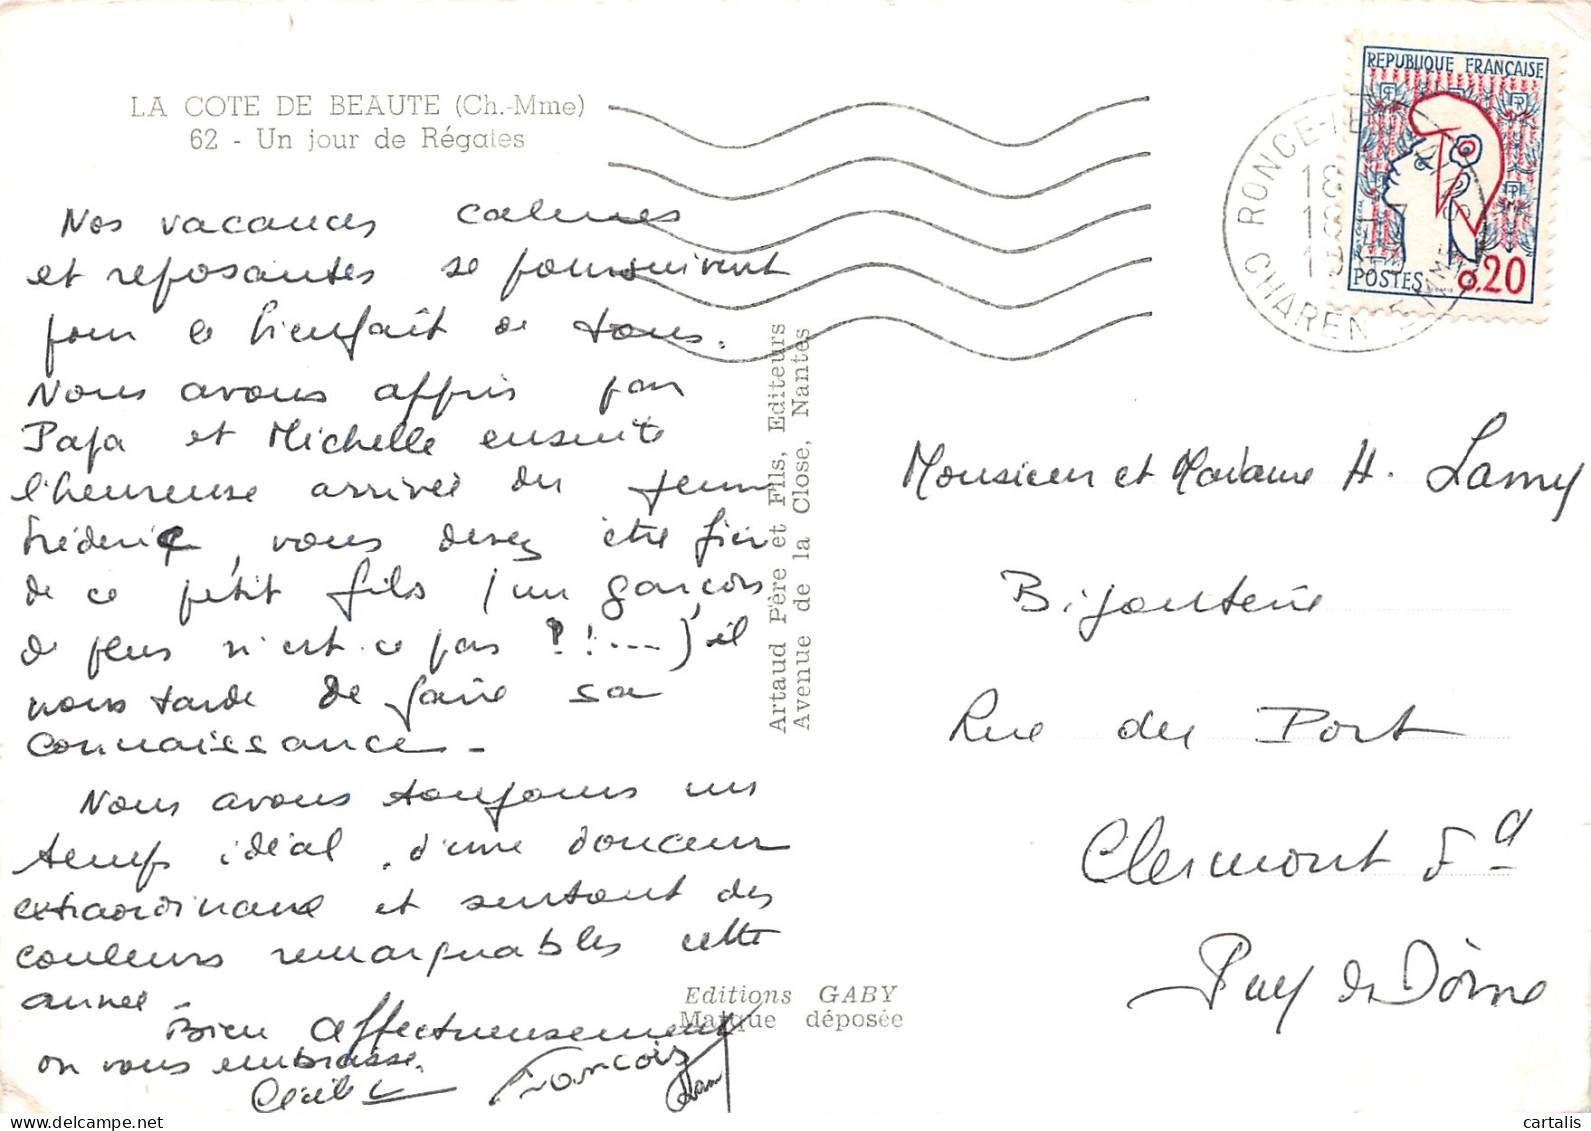 LA COTE DE BEAUTE (Ch.-Mme)
62 - Un jour de Régates
Nos vacances calmes
et reposantes se poursuivent
pour le bienfait de tous.
Nous avons appris par
Papa et Michelle ensuite
l'heureuse arrivée du jeune
Frédéric, vous devez être fier
de ce petit fils (un garçon
de plus n'est-ce pas ?!....) il
nous tarde de faire sa
connaissance -
Nous avons toujours un
temps idéal, d'une douceur
extraordinaire et surtout des
couleurs remarquables cette
année
Bien affectueusement
on vous embrasse.
Cécile François
Artaud Père et Fils, Editeurs
Avenue de la Close, Nantes
Editions GABY
Marque déposée
REPUBLIQUE FRANÇAISE
POSTES 0.20
RONCE-LES
CHAREN MME
Monsieur et Madame H. Lamy
Bijouterie
Rue du Port
Clermont Fd
Puy de Dôme
cartalis
www.delcampe.net